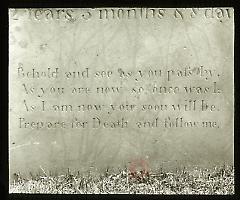 2 years 3 months & 8 day
Behold and see as you pass by,
As you are now so once was I.
As I am now you soon will be.
Prepare for Death and follow me.